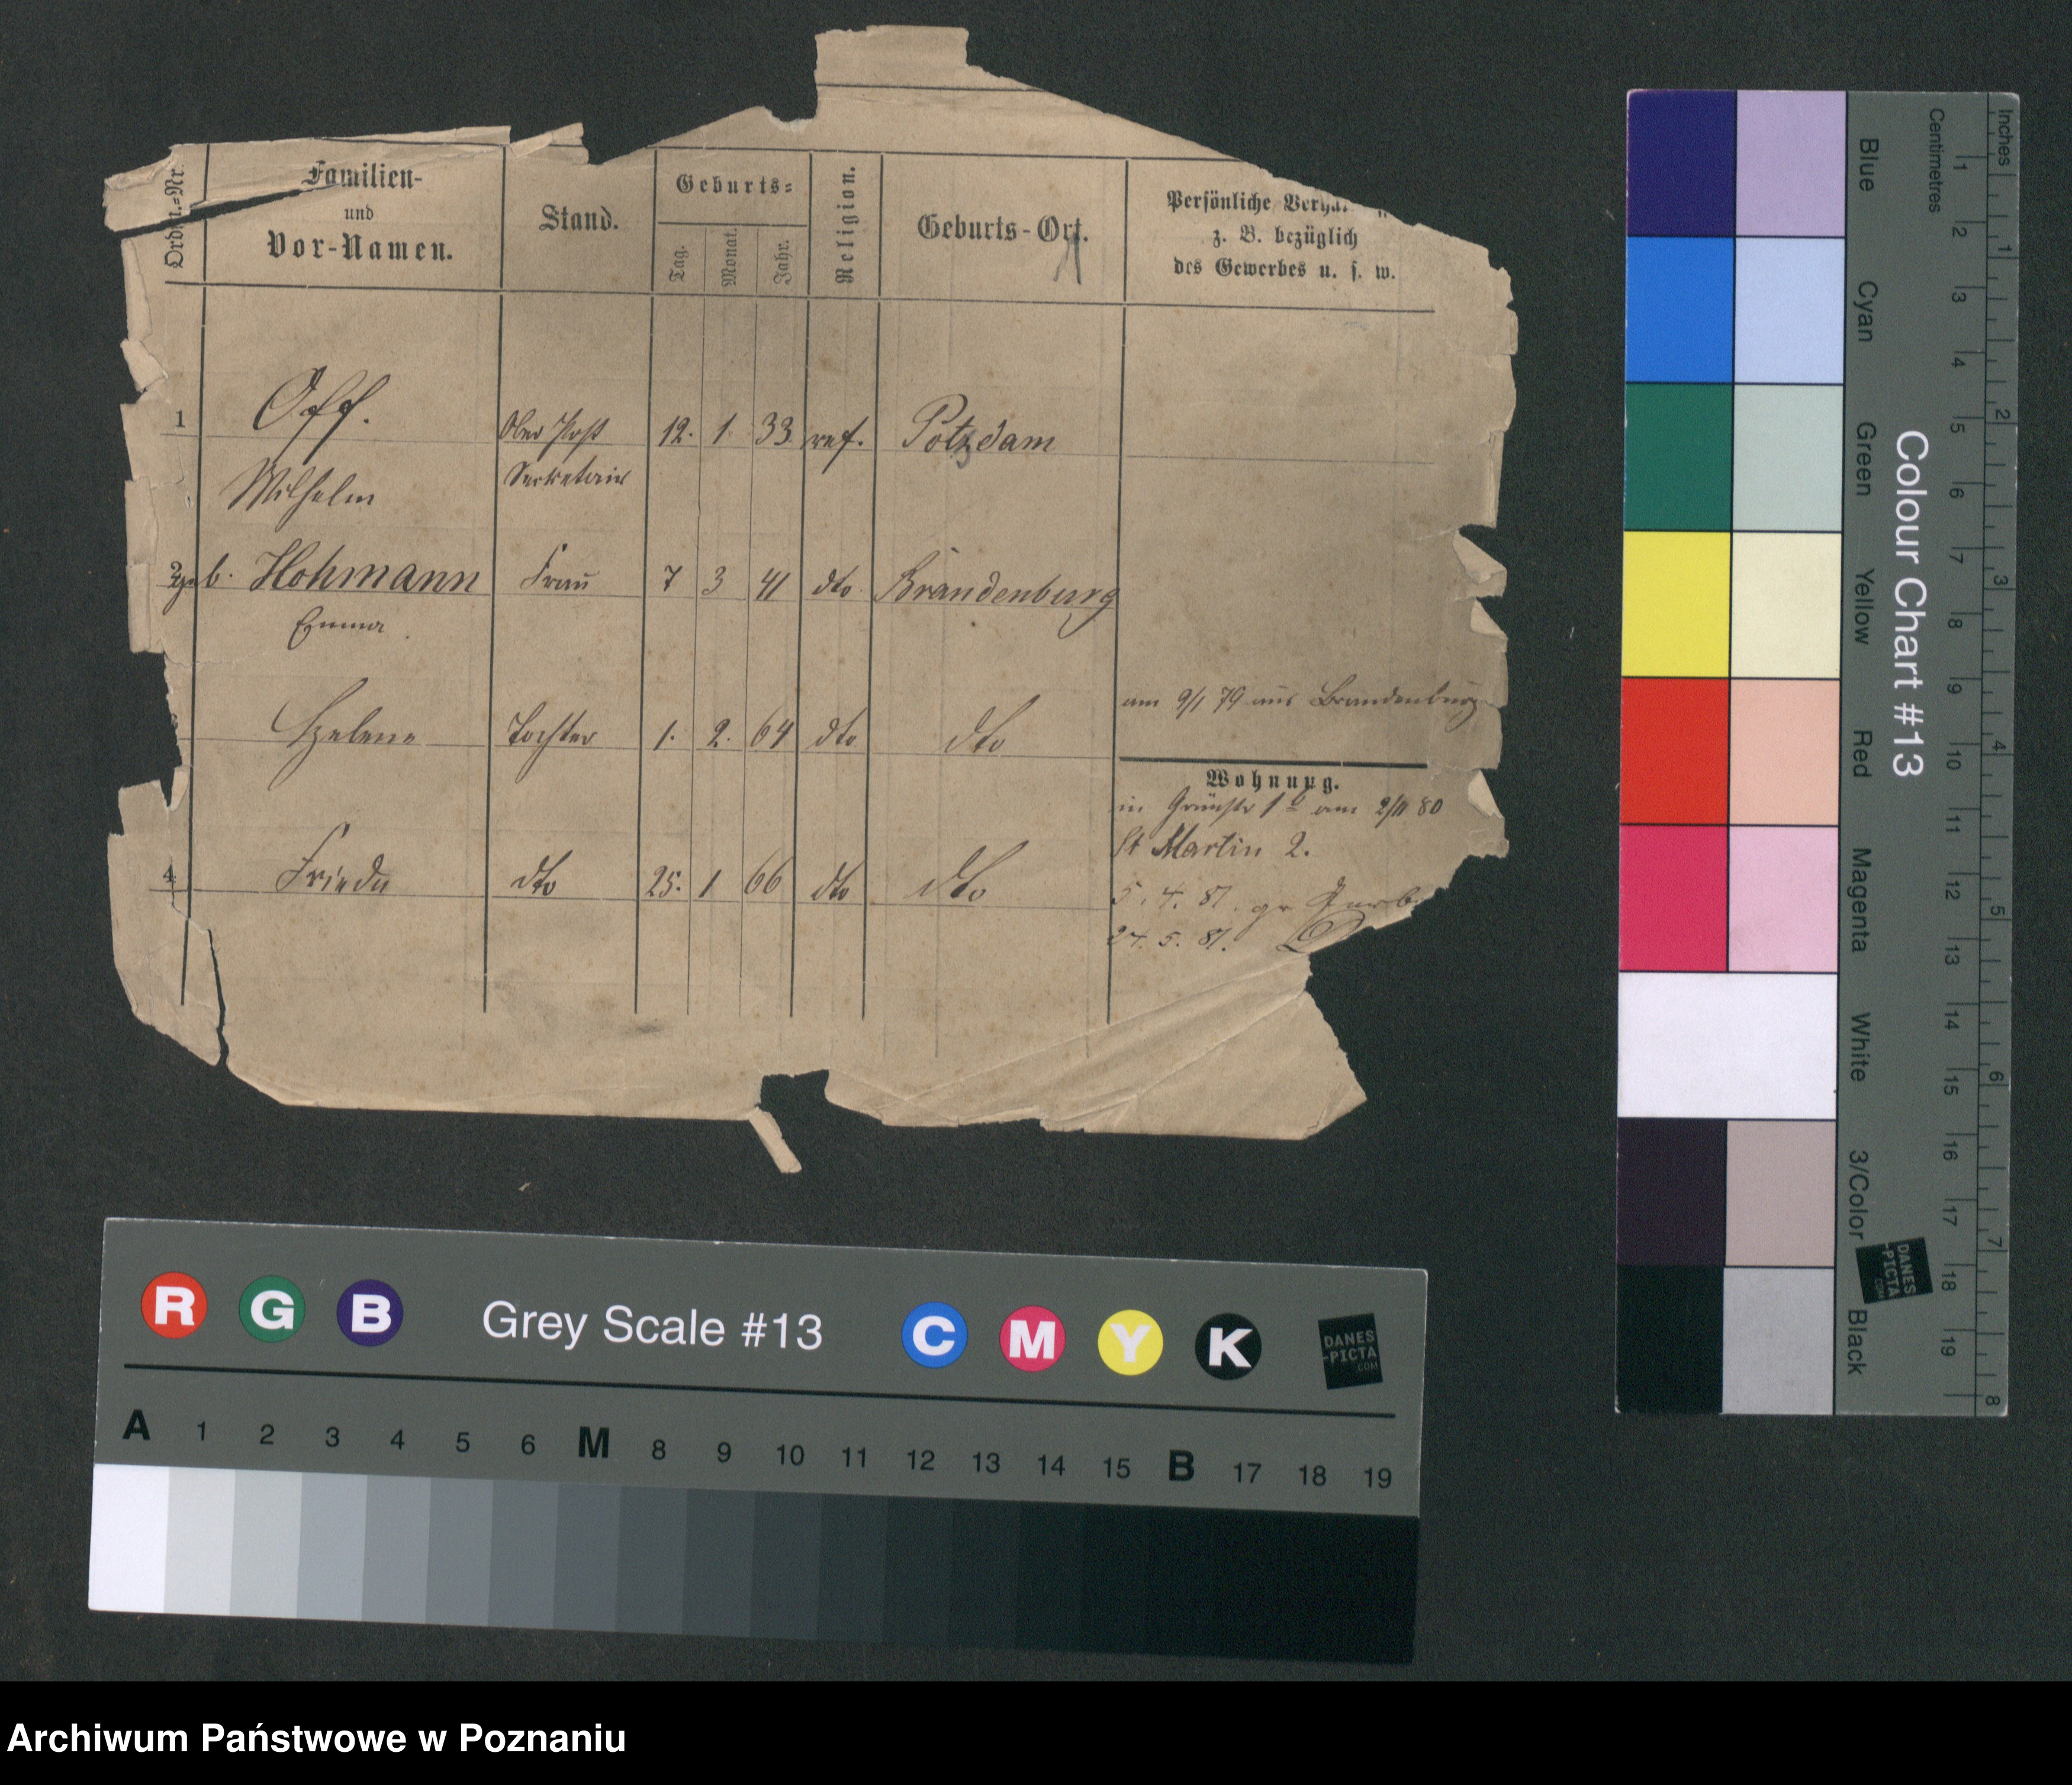 Ordn.=Nr.
Familien-
und
Vor-Namen.
Stand.
Geburts=
Tag.
Monat.
Jahr.
Religion.
Geburts-Ort.
Persönliche
z. B. bezüglich
des Gewerbes u. s. w.
1 Off. Ober Post 12. 1. 33 ref. Potzdam
Wilhelm Secretair
2 geb. Hohmann Frau 7 3 41 dto Brandenburg
Emma
Helene Tochter 1. 2. 64 dto dto
am 9/1 79 aus Brandenburg
Wohnung.
in Grünstr 1 b am 2/11 80
St Martin 2.
4 Frieda dto 25. 1 66 dto dto
5. 4. 81. gr Gerb
24. 5. 81.
Colour Chart #13
Blue
Cyan
Green
Yellow
Red
Magenta
White
3/Color
Black
Centimetres
1 2 3 4 5 6 7 8 9 10 11 12 13 14 15 16 17 18 19
Inches
1 2 3 4 5 6 7 8
DANES
-PICTA
.COM
R G B Grey Scale #13 C M Y K
DANES
-PICTA
.COM
A 1 2 3 4 5 6 M 8 9 10 11 12 13 14 15 B 17 18 19
Archiwum Państwowe w Poznaniu